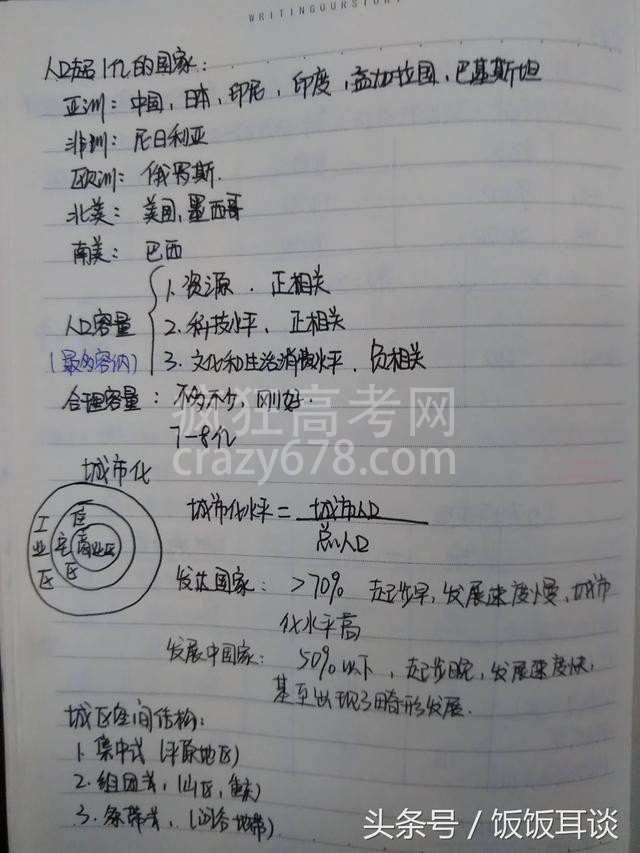 WRITINGOURSTORY
人口超1亿的国家：
亚洲：中国，日本，印尼，印度，孟加拉国，巴基斯坦
非洲：尼日利亚
欧洲：俄罗斯.
北美：美国，墨西哥
南美：巴西
1. 资源．正相关
人口容量 2. 科技水平．正相关
(最多容纳) 3. 文化和生活消费水平．负相关
合理容量：不多不少，刚好．
7-8亿
疯狂高考网
crazy678.com
城市化
工业区
住宅区
商业区
城市化水平 = 城市人口
总人口
发达国家：>70% 起步早，发展速度慢、城市
化水平高
发展中国家：50%以下，起步晚，发展速度快，
甚至出现了畸形发展．
城区空间结构：
1. 集中式 (平原地区)
2. 组团式，(山区，
3. 条带式，(河谷地带)
头条号 / 饭饭耳谈